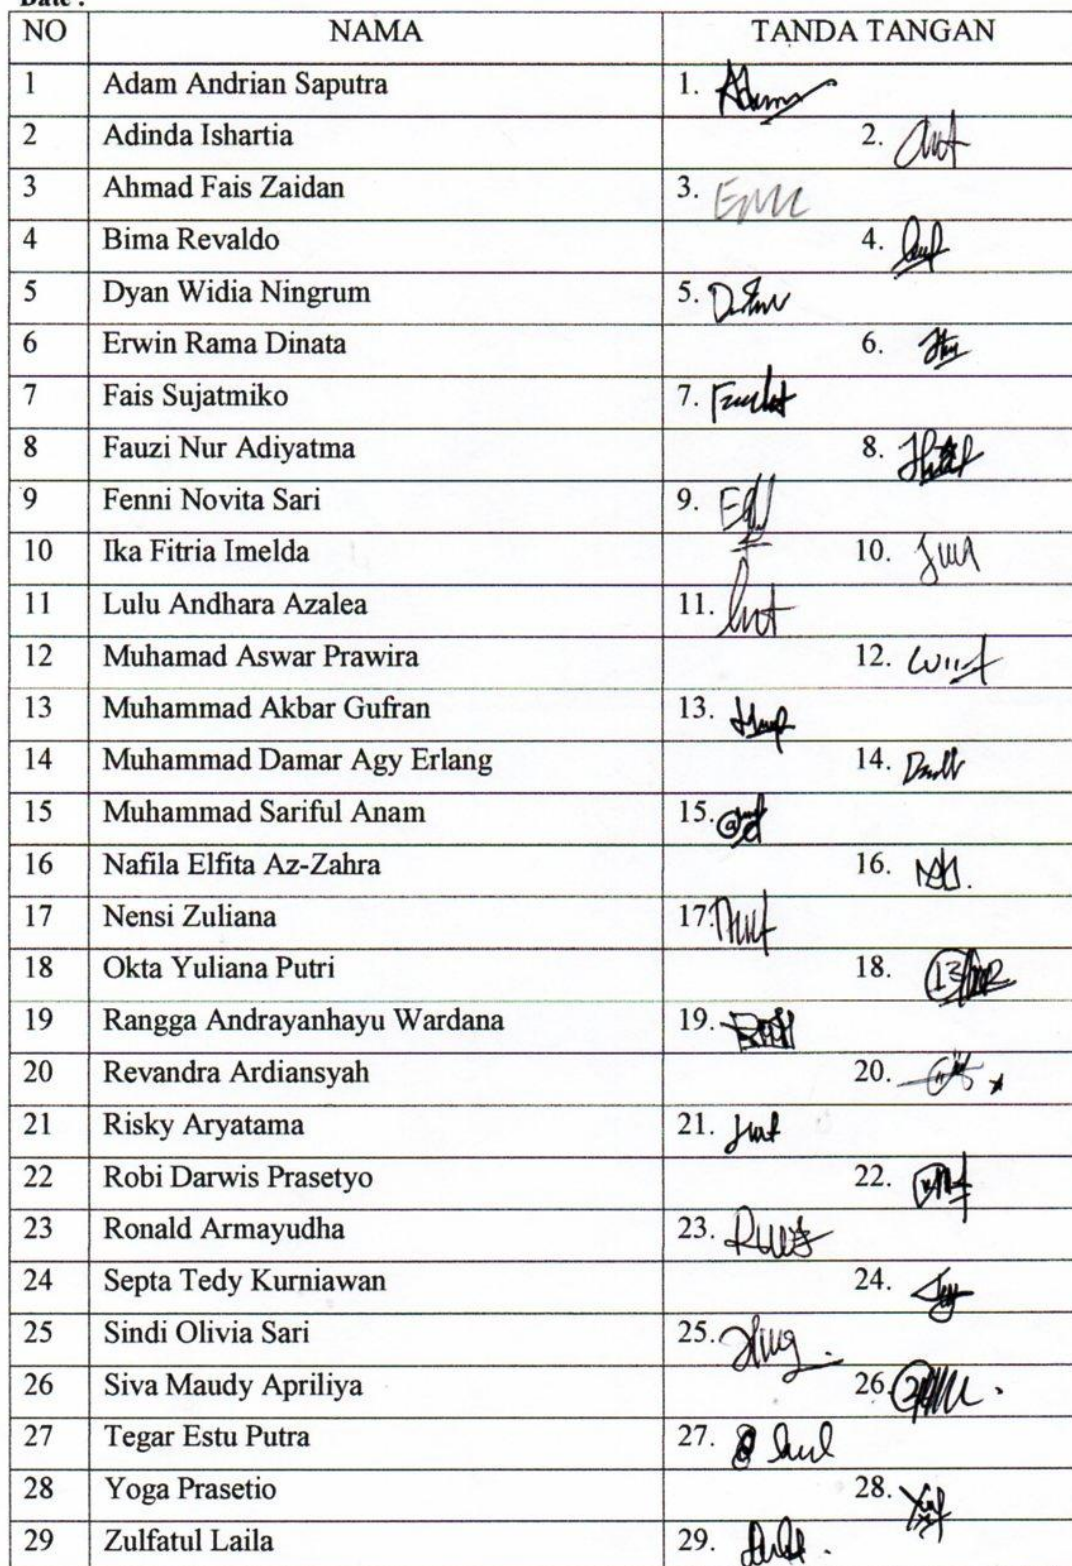 Date :
NO NAMA TANDA TANGAN
1 Adam Andrian Saputra 1. Adam
2 Adinda Ishartia 2.
3 Ahmad Fais Zaidan 3.
4 Bima Revaldo 4.
5 Dyan Widia Ningrum 5.
6 Erwin Rama Dinata 6.
7 Fais Sujatmiko 7.
8 Fauzi Nur Adiyatma 8.
9 Fenni Novita Sari 9.
10 Ika Fitria Imelda 10.
11 Lulu Andhara Azalea 11.
12 Muhamad Aswar Prawira 12.
13 Muhammad Akbar Gufran 13.
14 Muhammad Damar Agy Erlang 14.
15 Muhammad Sariful Anam 15.
16 Nafila Elfita Az-Zahra 16.
17 Nensi Zuliana 17.
18 Okta Yuliana Putri 18.
19 Rangga Andrayanhayu Wardana 19.
20 Revandra Ardiansyah 20.
21 Risky Aryatama 21.
22 Robi Darwis Prasetyo 22.
23 Ronald Armayudha 23.
24 Septa Tedy Kurniawan 24.
25 Sindi Olivia Sari 25.
26 Siva Maudy Apriliya 26.
27 Tegar Estu Putra 27.
28 Yoga Prasetio 28.
29 Zulfatul Laila 29.